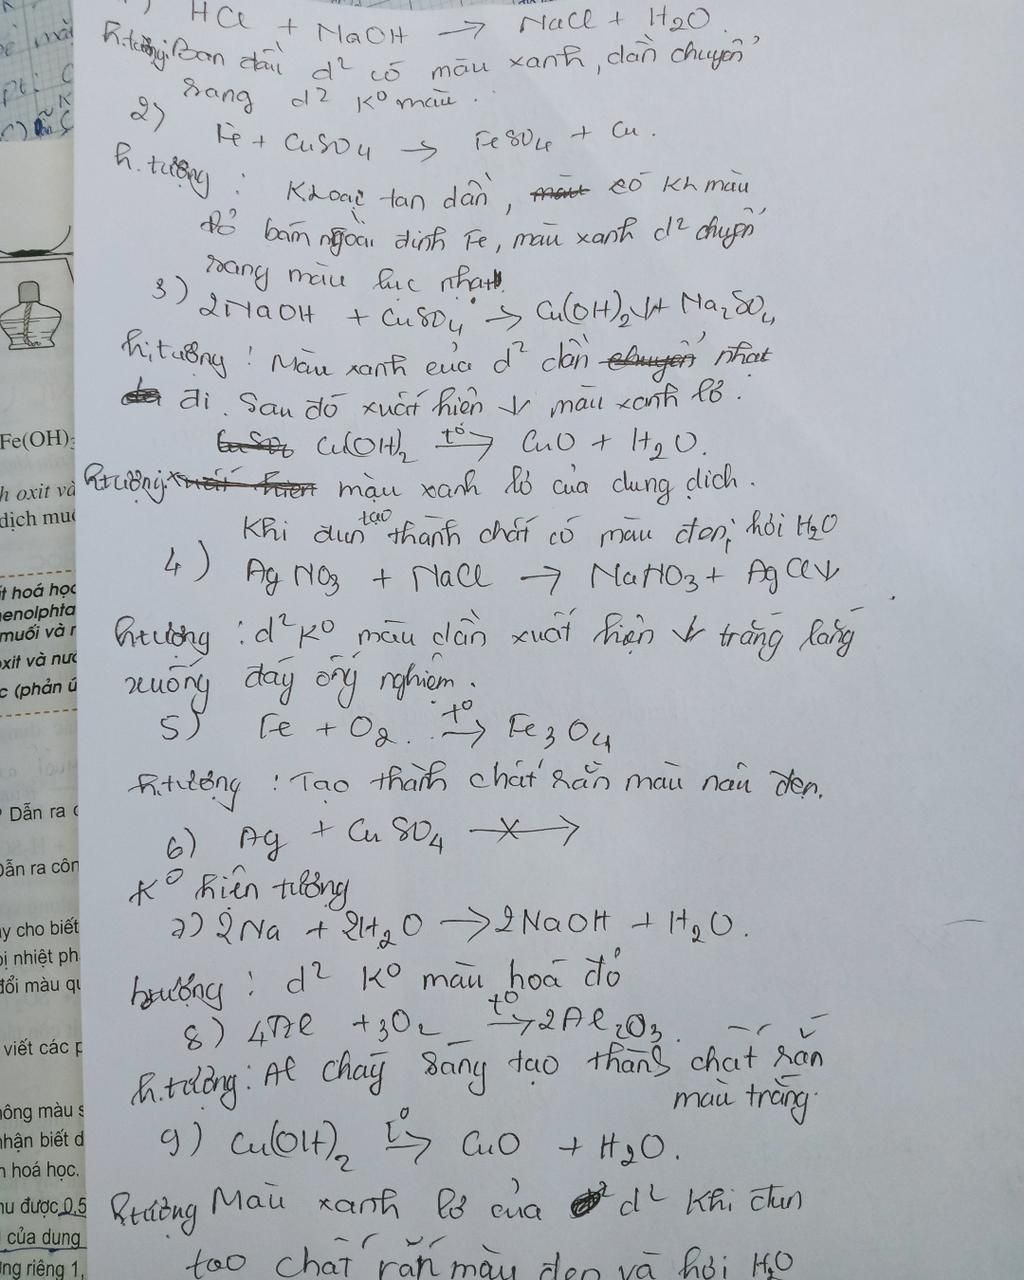 HCl + NaOH → NaCl + H2O
h.tượng: Ban đầu d² có màu xanh, dần chuyển
sang d² K⁰ màu.
2)
Fe + CuSO4 → FeSO4 + Cu.
h.tượng: K.loại tan dần, có kh màu
đỏ bám ngoài đinh Fe, màu xanh d² chuyển
sang màu lục nhạt.
3) 2NaOH + CuSO4 → Cu(OH)2↓ + Na2SO4
h.tượng: Màu xanh của d² dần nhạt
đi. Sau đó xuất hiện ↓ màu xanh lơ.
Cu(OH)2 t⁰→ CuO + H2O.
h.tượng: màu xanh lơ của dung dịch.
Khi đun tạo thành chất có màu đen, hơi H2O
4) AgNO3 + NaCl → NaNO3 + AgCl↓
h.tượng: d² K⁰ màu dần xuất hiện ↓ trắng lắng
xuống đáy ống nghiệm.
5) Fe + O2 t⁰→ Fe3O4
h.tượng: Tạo thành chất rắn màu nâu đen.
6) Ag + CuSO4 ⇸
K⁰ hiện tượng
7) 2Na + 2H2O → 2NaOH + H2O.
h.tượng: d² K⁰ màu hoá đỏ
8) 4Al + 3O2 t⁰→ 2Al2O3.
h.tượng: Al cháy sáng tạo thành chất rắn
màu trắng.
9) Cu(OH)2 t⁰→ CuO + H2O.
h.tượng Màu xanh lơ của d² khi đun
tạo chất rắn màu đen và hơi H2O
Fe(OH)3
h oxit và
dịch muố
t hoá học
enolphta
muối và n
oxit và nướ
c (phản ứ
Dẫn ra c
Dẫn ra côn
y cho biết
bị nhiệt ph
đổi màu qu
viết các p
hông màu s
nhận biết d
n hoá học.
hu được 0,5
của dung
ng riêng 1,